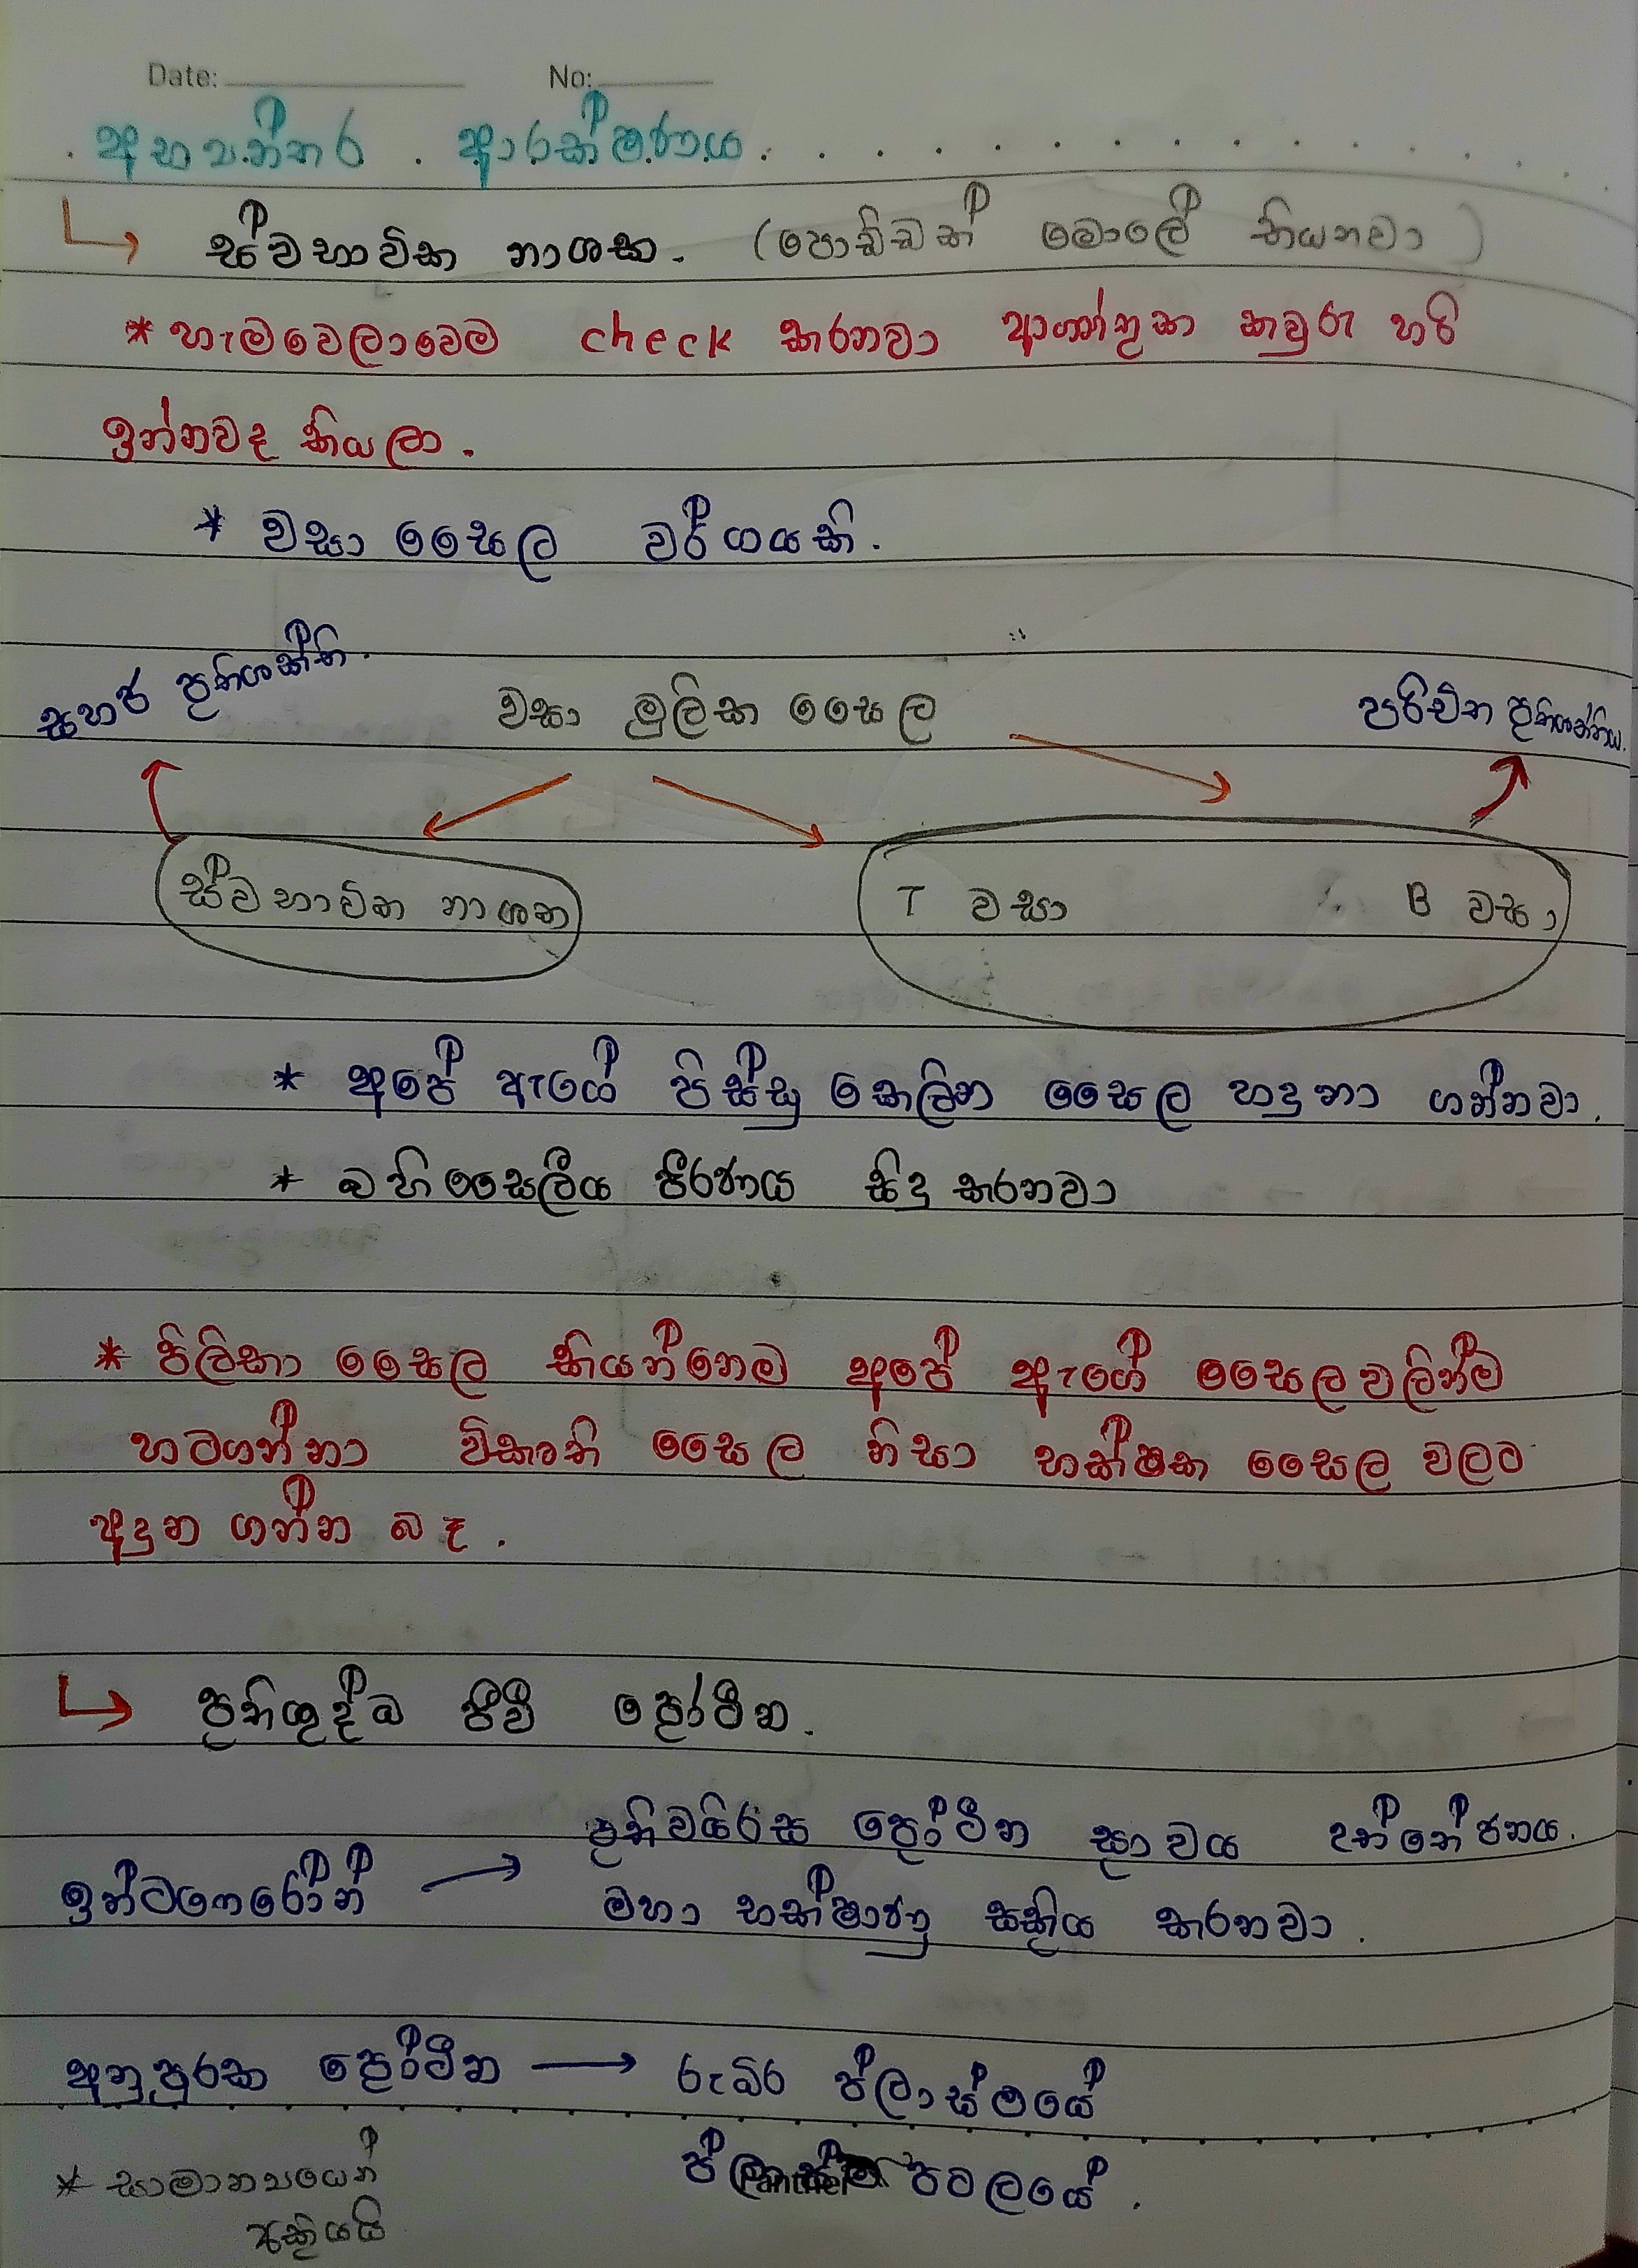 Date: No:
අභ්‍යන්තර ආරක්ෂණය
ස්වභාවික නාශක. (පොඩ්ඩක් මොලේ තියනවා)
* හැමවෙලාවෙම check කරනවා ආගන්තුක කවුරු හරි
ඉන්නවද කියලා.
* වසා සෛල වර්ගයකි.
සහජ ප්‍රතිශක්ති.
වසා මූලික සෛල
පරිචිත ප්‍රතිශක්තිය.
ස්වභාවික නාශක
T වසා B වසා
* අපේ ඇගේ පිස්සු කෙලින සෛල හදුනා ගන්නවා.
* බහිසෛලීය ජීරණය සිදු කරනවා
* පිලිකා සෛල කියන්නෙම අපේ ඇගේ සෛල වලින්ම
හටගන්නා විකෘති සෛල නිසා භක්ෂක සෛල වලට
අදුන ගන්න බෑ.
ප්‍රතික්ෂුද්‍ර ජීවී ප්‍රෝටීන.
ප්‍රතිවයිරස ප්‍රෝටීන ස්‍රාවය උත්තේජනය.
ඉන්ටෆෙරෝන් → මහා භක්ෂාණු සක්‍රිය කරනවා.
අනුපූරක ප්‍රෝටීන → රුධිර ප්ලාස්මයේ
ප්ලාස්ම පටලයේ.
* සාමාන්‍යයෙන්
අක්‍රියයි